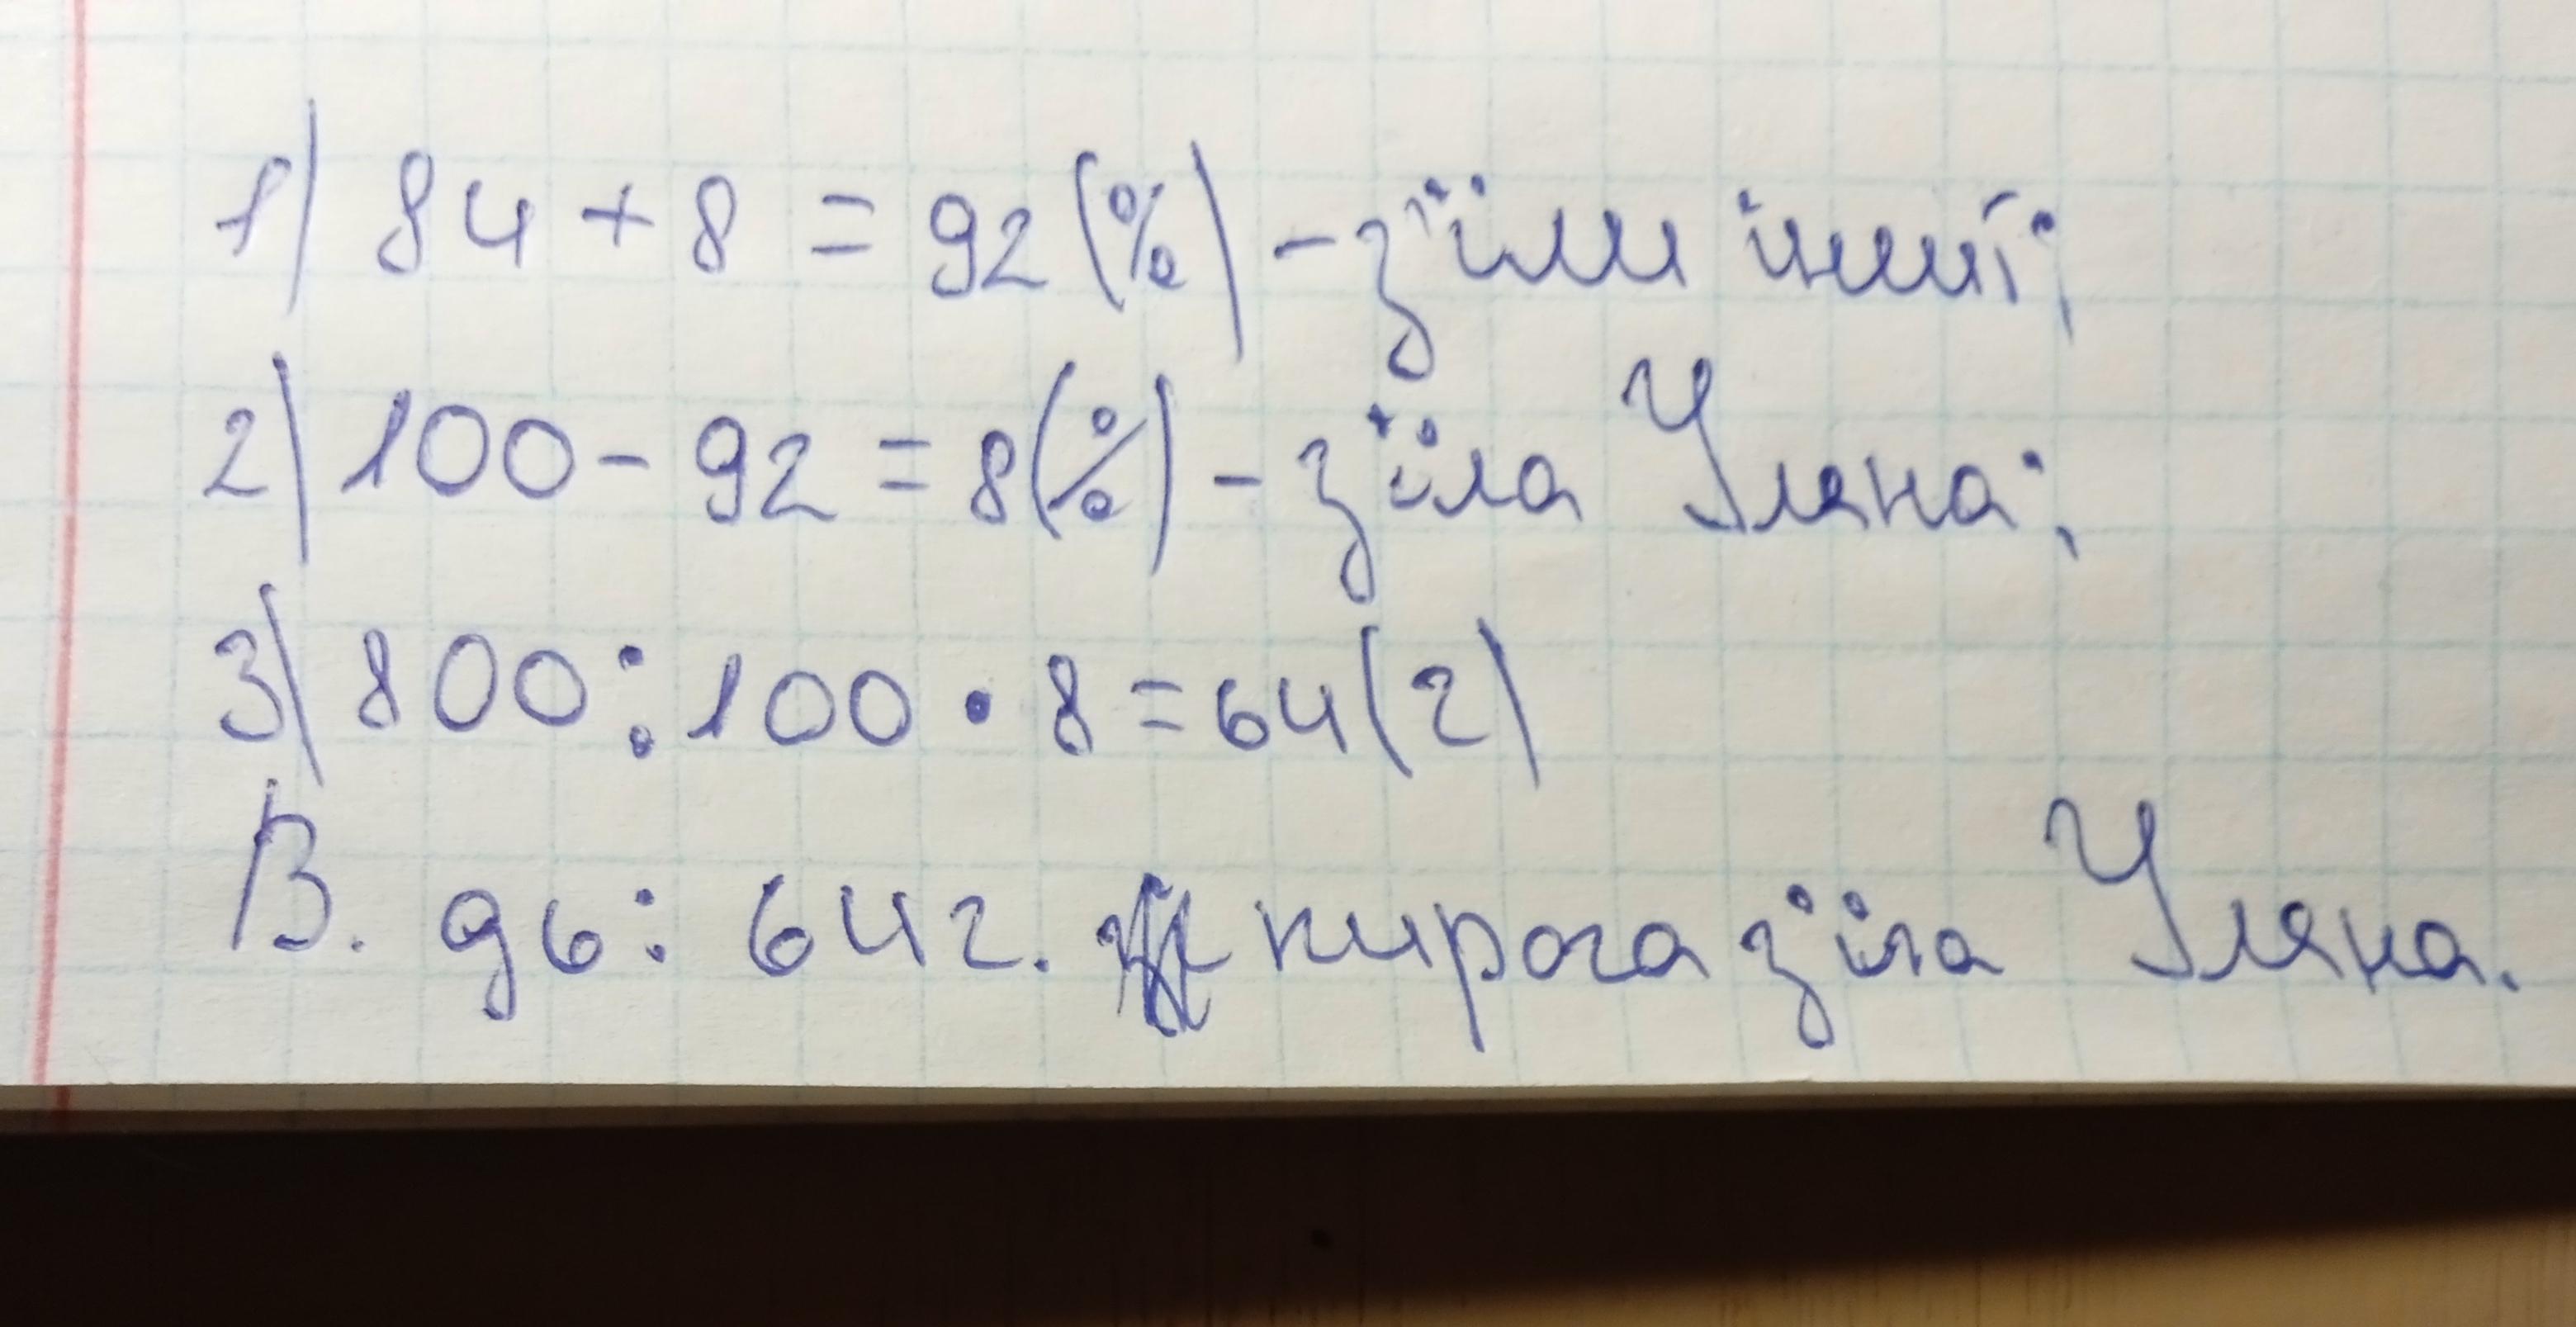 1) 84 + 8 = 92 (%) - з'їли інші;
2) 100 - 92 = 8 (%) - з'їла Уляна;
3) 800 : 100 • 8 = 64 (г)
В. дь: 64 г. пирога з'їла Уляна.